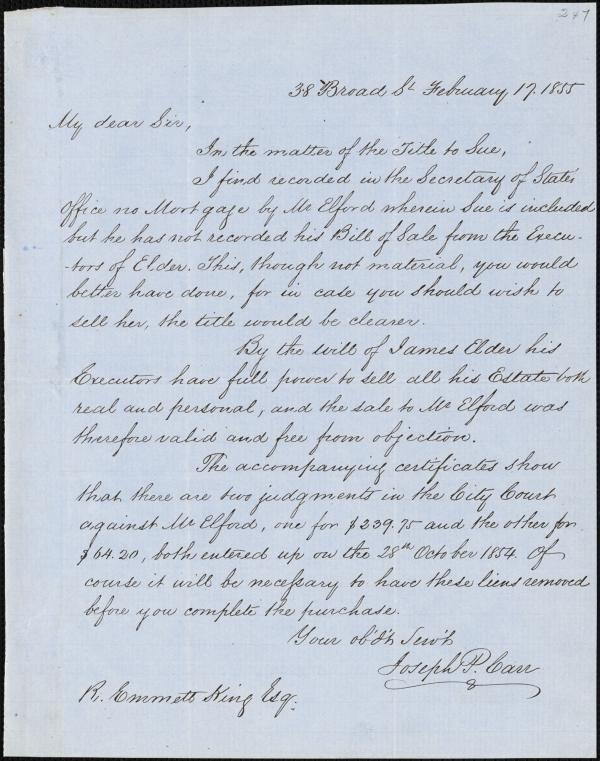 247
38 Broad St February 17. 1855
My dear Sir,
In the matter of the Title to Sue,
I find recorded in the Secretary of States
Office no Mortgage by Mr Elford wherein Sue is included
but he has not recorded his Bill of Sale from the Execu-
-tors of Elder. This, though not material, you would
better have done, for in case you should wish to
sell her, the title would be clearer.
By the will of James Elder his
Executors have full power to sell all his Estate both
real and personal, and the sale to Mr Elford was
therefore valid and free from objection.
The accompanying certificates show
that there are two judgments in the City Court
against Mr Elford, one for $239.75 and the other for
$64.20, both entered up on the 28th October 1854. Of
course it will be necessary to have these liens removed
before you complete the purchase.
Your ob'd't Serv't
Joseph P. Carr
R. Emmett King Esq.